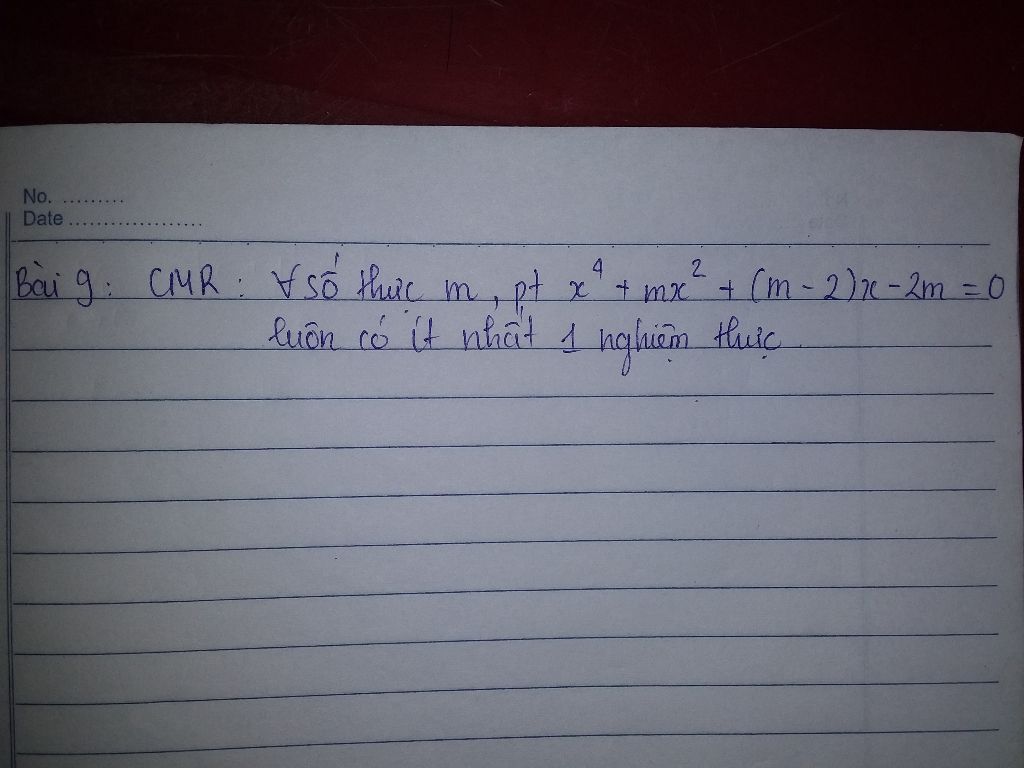 No. .........
Date ...................
Bài 9: CMR: ∀ số thực m, pt x⁴ + mx² + (m - 2)x - 2m = 0
luôn có ít nhất 1 nghiệm thực